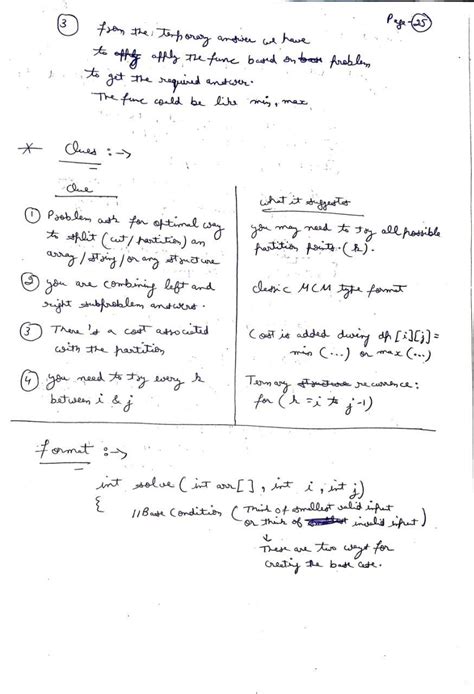 Page-25
3 from the temporary answer we have
to apply the func based on problem
to get the required answer.
The func could be like min, max
* Clues :→
Clue
what it suggests
1 Problem ask for optimal way
to split (cut/partition) an
array/string/or any structure
you may need to try all possible
partition points. (k).
2 you are combining left and
right subproblem answers.
classic MCM type format
3 There's a cost associated
with the partition
Cost is added during dp[i][j] =
min (...) or max (...)
4 you need to try every k
between i & j
Ternary structure recurrence:
for (k = i to j-1)
Format :→
int solve (int arr[], int i, int j)
{
//Base Condition (Think of smallest valid input
or think of invalid input)
↓
These are two ways for
creating the base case.